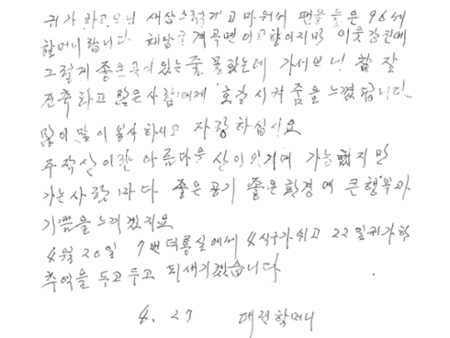 귀가 하고보니 새삼스럽게 고마워서 팬을 들은 96세
할머니 랍니다 해남군 계곡면이 고향이지만 이웃 강진에
그렇게 좋은 곳이 있는줄 몰랐는데 가서보니 참 잘
건축하고 많은 사람에게 호감시켜 줌을 느꼈답니다
많이 많이 봉사하시고 자랑하십시요
주작산이란 아름다운 산이 있기에 가능했지만
가는 사람마다 좋은공기 좋은환경에 큰행복과
기쁨을 느끼겠지요
4월 20일 7번 덕룡실에서 4식구가쉬고 22일귀가한
추억을 두고두고 되새기겠습니다
4. 27 대전할머니